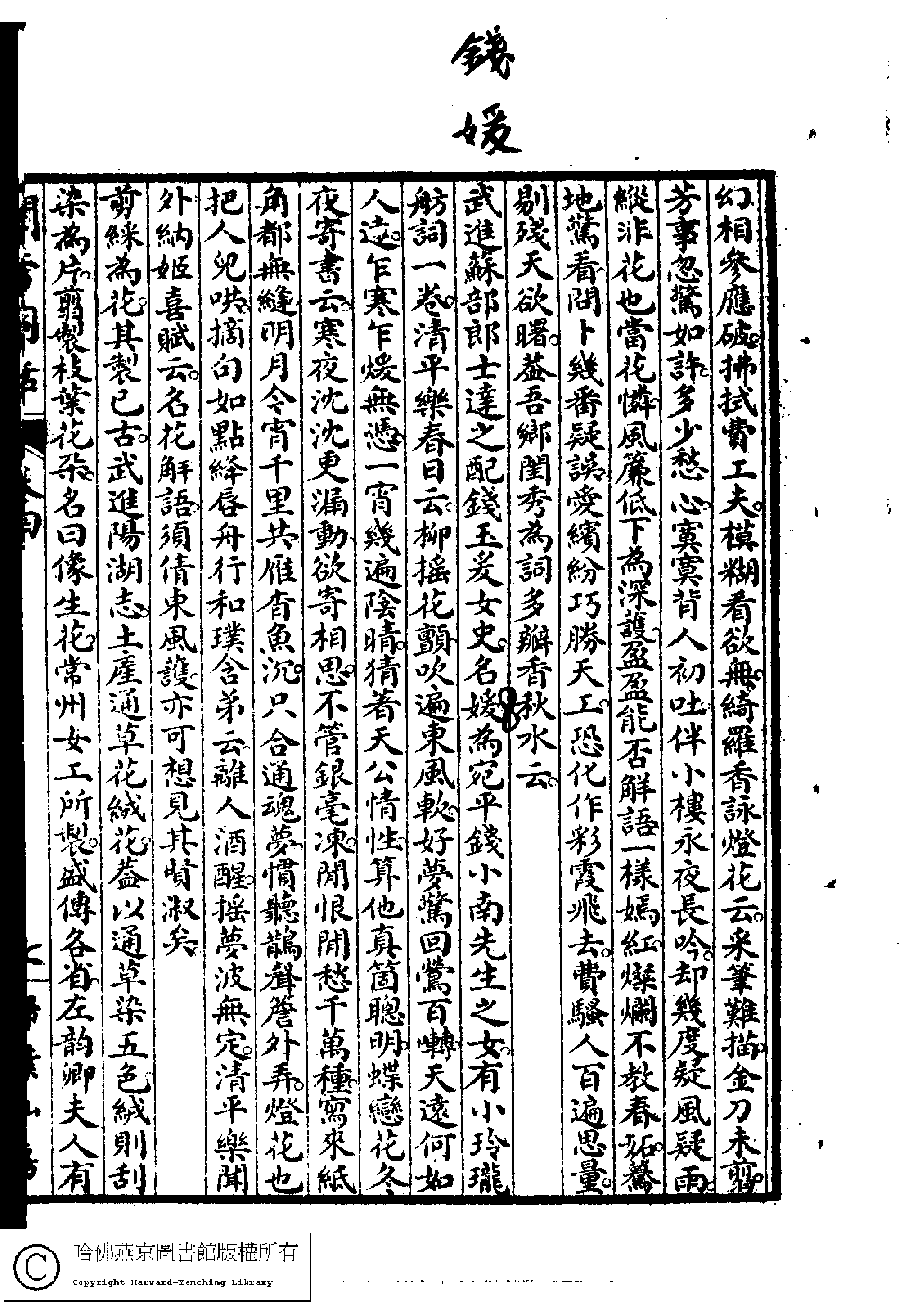 錢
媛
幻相參應破拂拭費工夫模糊看欲無綺羅香詠燈花云采筆難描金刀未翦
芳事忽驚如許多少愁心寞寞背人初吐伴小樓永夜長吟却幾度疑風疑雨
縱非花也當花憐風簾低下為深護盈盈能否解語一樣嫣紅燦爛不教春妬驀
地驚看問卜幾番疑誤愛繽紛巧勝天工恐化作彩霞飛去費騷人百遍思量
剔殘天欲曙葢吾鄉閨秀為詞多瓣香秋水云
武進蘇部郎士達之配錢玉爰女史名媛為宛平錢小南先生之女有小玲瓏
舫詞一卷清平樂春日云柳搖花顫吹遍東風軟好夢驚回鶯百囀天遠何如
人遠乍寒乍煖無憑一宵幾遍陰晴猜著天公情性算他真箇聰明蝶戀花冬
夜寄書云寒夜沈沈更漏動欲寄相思不管銀毫凍閒恨閒愁千萬種寫來紙
角都無縫明月今宵千里共雁杳魚沉只合通魂夢慣聽鵲聲簷外弄燈花也
把人兒哄摘句如點絳唇舟行和璞含弟云離人酒醒搖夢波無定清平樂聞
外納姬喜賦云名花解語須倩東風護亦可想見其賢淑矣
剪綵為花其製已古武進陽湖志土產通草花絨花葢以通草染五色絨則刮
染為片翦製枝葉花朶名曰像生花常州女工所製盛傳各省左韵卿夫人有
哈佛燕京圖書館版權所有
Copyright Harvard-Yenching Library